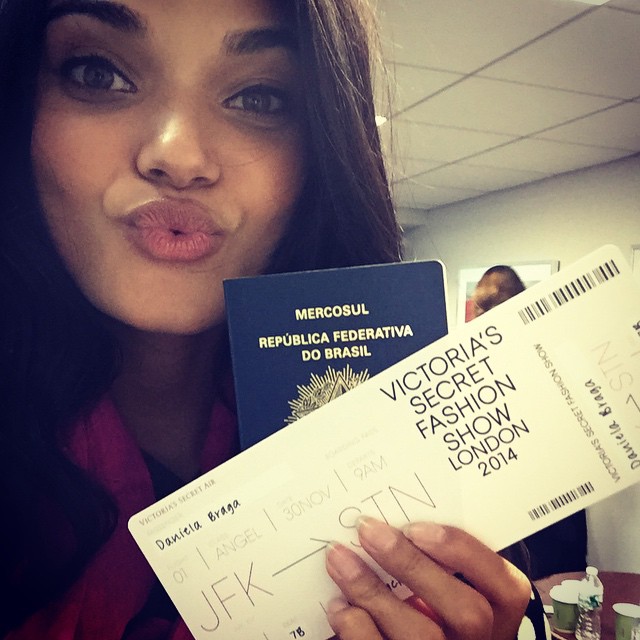 MERCOSUL
REPÚBLICA FEDERATIVA
DO BRASIL
VICTORIA'S
SECRET
FASHION
SHOW
LONDON
2014
VICTORIA'S SECRET AIR
Daniela Braga
01 | ANGEL | 30NOV | 9AM
JFK → STN
7B
VICTORIA'S SECRET FASHION SHOW
STN
Daniela Braga